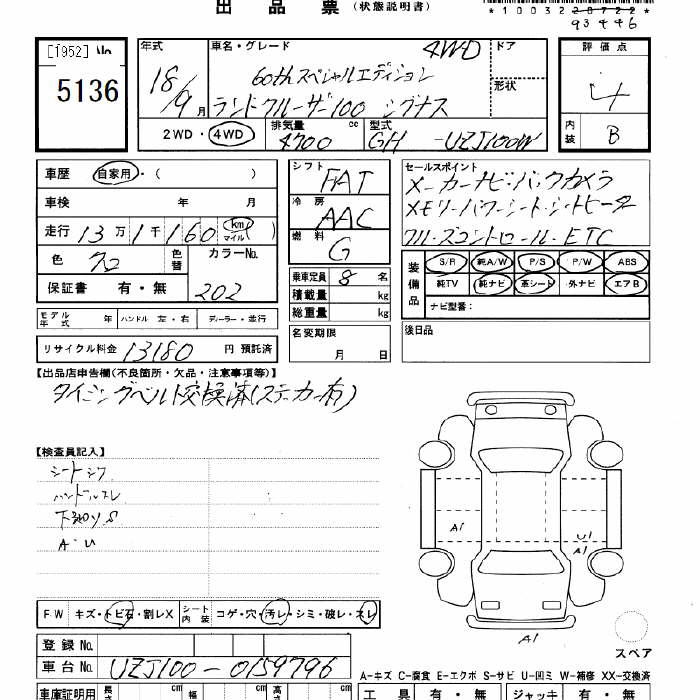 出品票（状態説明書）
*10032 28722 *
93446
[1952] No
5136
年式 車名・グレード 4WD ドア
18/9月 60thスペシャルエディション
ランドクルーザー100 シグナス 形状
2WD・4WD 排気量 cc 4700 型式 GH -UZJ100W
評価点 4
内装 B
車歴 自家用・( )
車検 年 月
走行 13万1千160 km マイル
色 クロ 色替 カラーNo.
保証書 有・無 202
シフト FAT
冷房 AAC
燃料 G
乗車定員 8 名
積載量 kg
総重量 kg
名変期限
月 日
セールスポイント
メーカーナビ・バックカメラ
メモリーパワーシート・シートヒーター
クルーズコントロール・ETC
装備品 S/R 純A/W P/S P/W ABS
純TV 純ナビ 革シート 外ナビ エアB
ナビ型番：
後日品
モデル年式 年 ハンドル 左・右 ディーラー・並行
リサイクル料金 13180 円 預託済
【出品店申告欄(不良箇所・欠品・注意事項等)】
タイミングベルト交換済(ステッカー有)
【検査員記入】
シートシワ
ハンドルスレ
下廻りS
A・U
A1
U1
A1
A1
スペア
FW キズ・トビ石・割レX シート内装 コゲ・穴・汚レ・シミ・破レ・スレ
登録No.
車台No. UZJ100-0159796
A-キズ C-腐食 E-エクボ S-サビ U-凹ミ W-補修 XX-交換済
車庫証明用 長さ cm 幅 cm 高さ cm
工具 有・無 ジャッキ 有・無